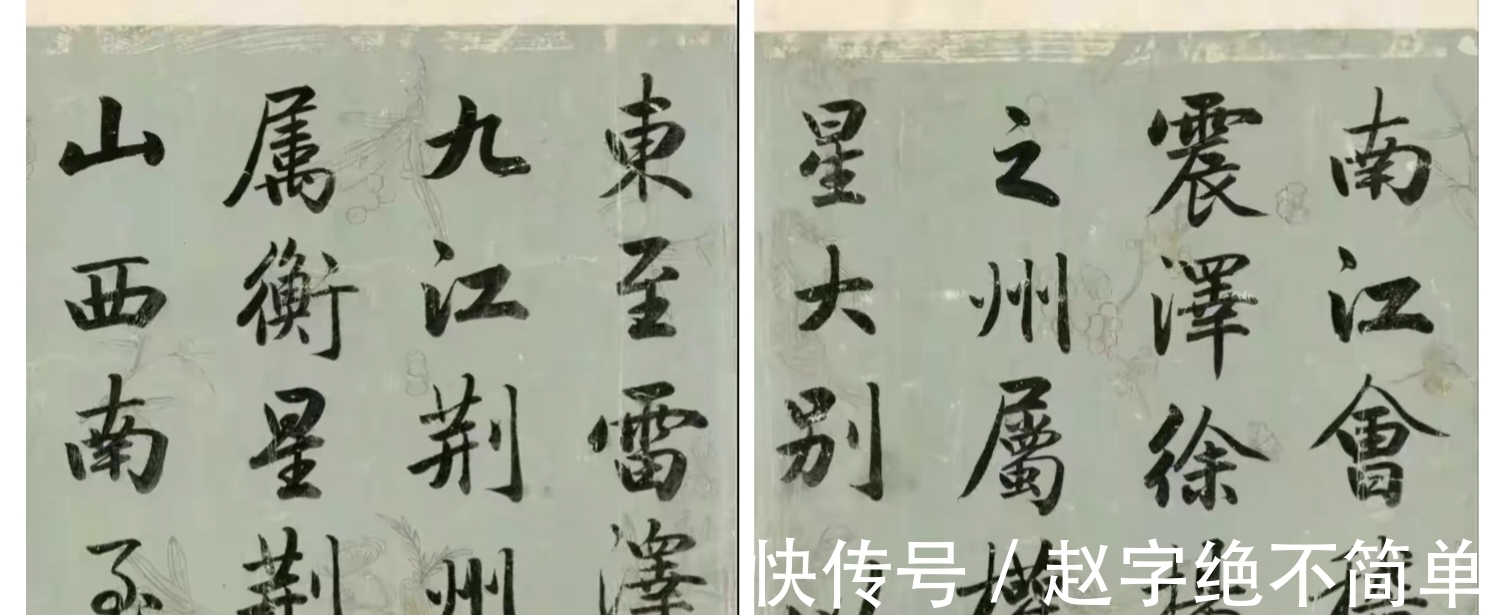 南江會
震澤徐
之州屬
星大别
東至雷澤
九江荆州
属衡星荆
山西南至
快传号 / 赵字绝不简单